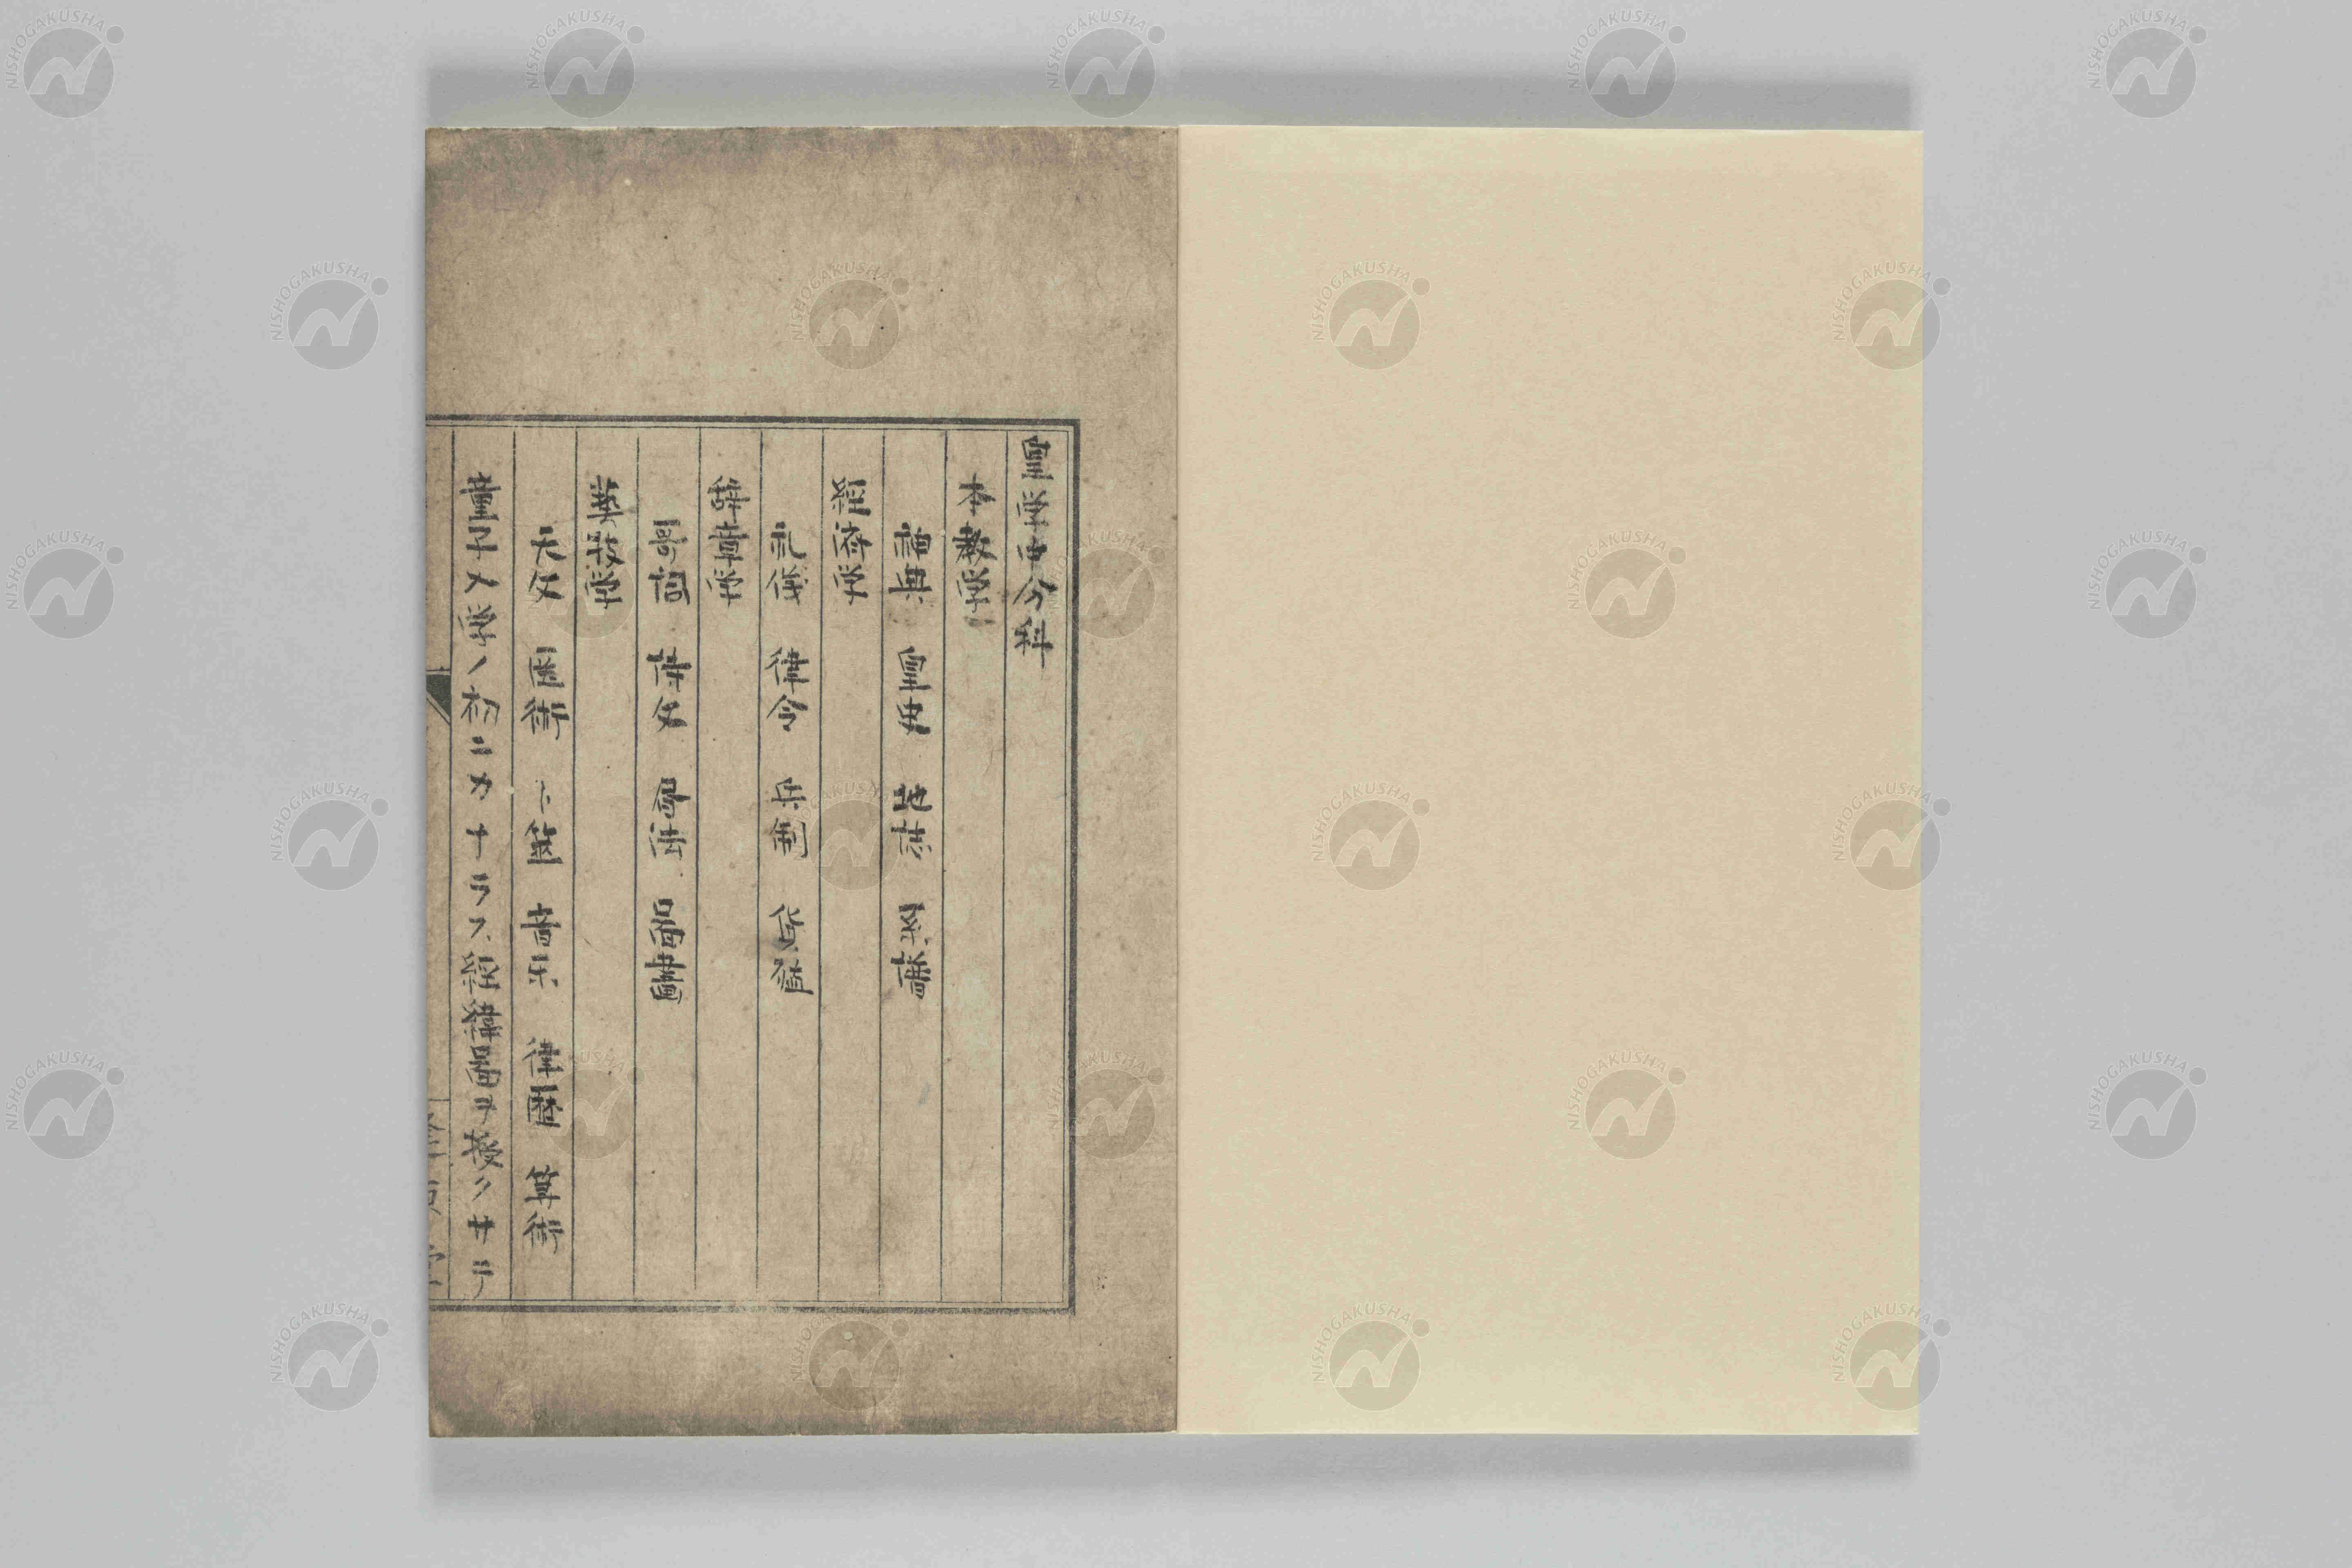 皇学中分科
本教学
神典　皇史　地志　系譜
経済学
礼儀　律令　兵制　貨殖
辞章学
哥詞　詩文　書法　啚畫
藝技学
天文　医術　卜筮　音楽　律暦　算術
童子入学ノ初ニカナラス経籍啚ヲ授クサテ
NISHOGAKUSHA